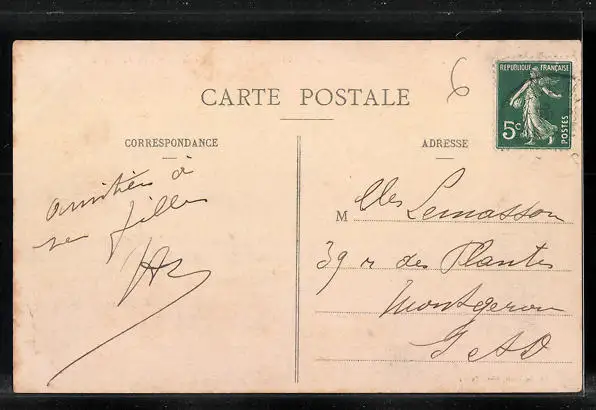 6
CARTE POSTALE
REPUBLIQUE FRANÇAISE
5c
POSTES
CORRESPONDANCE
ADRESSE
amitiés à
filles
M lles Lemasson
39 r des Plantes
Montgeron
S et O